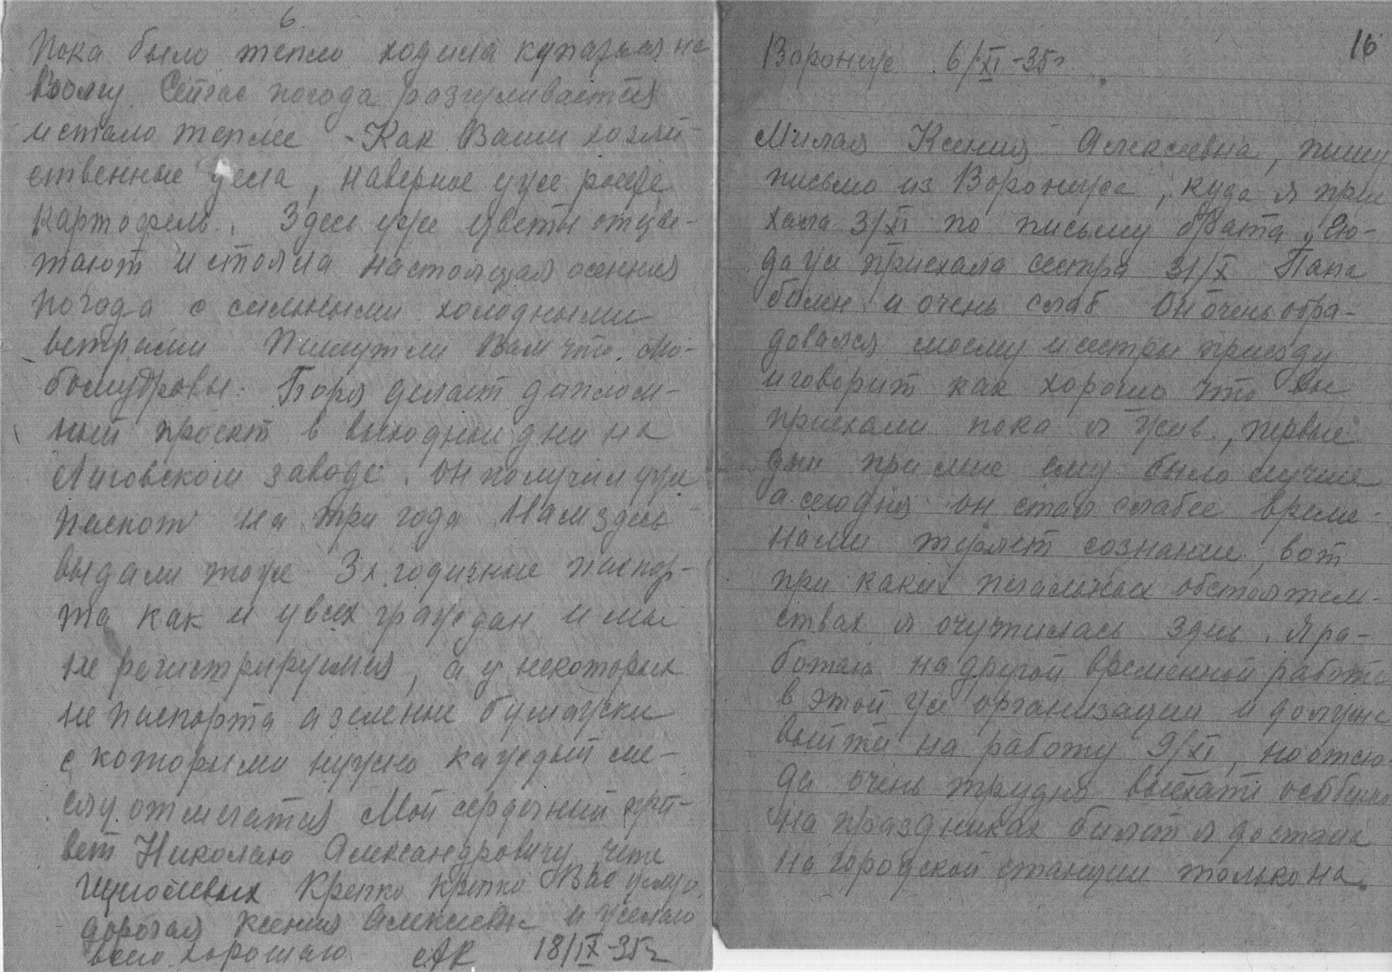 6.
Пока было тепло ходила купаться на
Волгу. Сейчас погода разгуливается
и стало теплее - Как Ваши хозяй-
ственные дела, наверное уже роете
картофель. Здесь уже цветы отцве-
тают и стояла настоящая осенняя
погода с сильными холодными
ветрами Пишут ли Вам что Лю-
бомудровы. Боря делает диплом-
ный проект в выходные дни на
заводе. Он получил уже
паспорт на три года Нам здесь
выдали тоже 3х годичные паспор-
та как и у всех граждан и мы
не регистрируемся, а у некоторых
не паспорта а зеленые бумажки
с которыми нужно каждый ме-
сяц отмечаться Мой сердечный при-
вет Николаю Александровичу, чете
Крепко крепко Вас целую
дорогая Ксения Алексеевна и желаю
всего хорошего АР 18/IX-35г
16
Воронеж 6/XI-35г.
Милая Ксения Алексеевна, пишу
письмо из Воронежа, куда я прие
хала 3/XI по письму брата. Сю-
да же приехала сестра 31/X Папа
болен и очень слаб Он очень обра-
довался моему и сестры приезду
и говорит как хорошо что вы
приехали пока я жив, первые
дни при мне ему было лучше
а сегодня он стал слабее време-
нами теряет сознание, вот
при каких печальных обстоятель-
ствах я очутилась здесь. Я ра-
ботаю на другой временной работе
в этой же организации и должна
выйти на работу 9/XI, но отсю-
да очень трудно выехать особенно
на праздниках билет я достала
на городской станции только на